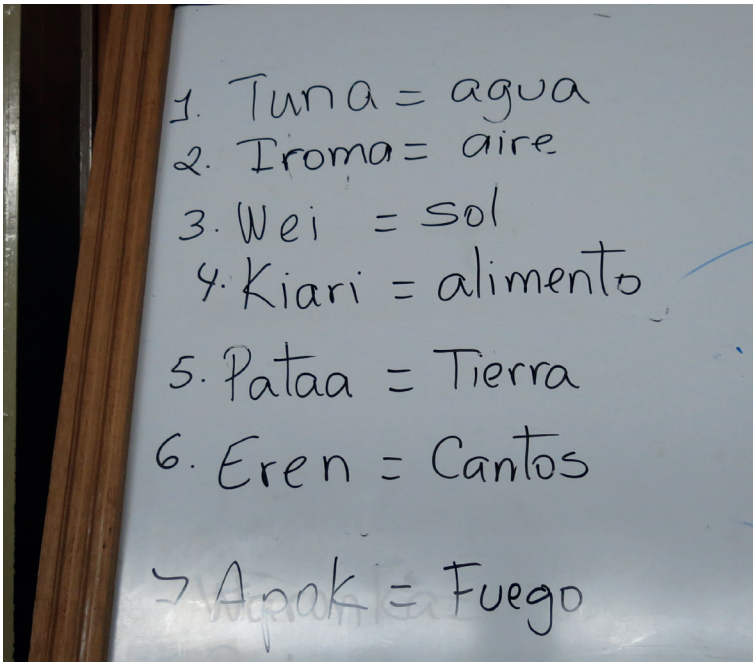 1. Tuna = agua
2. Iroma = aire
3. Wei = sol
4. Kiari = alimento
5. Pataa = Tierra
6. Eren = Cantos
7 Apok = Fuego